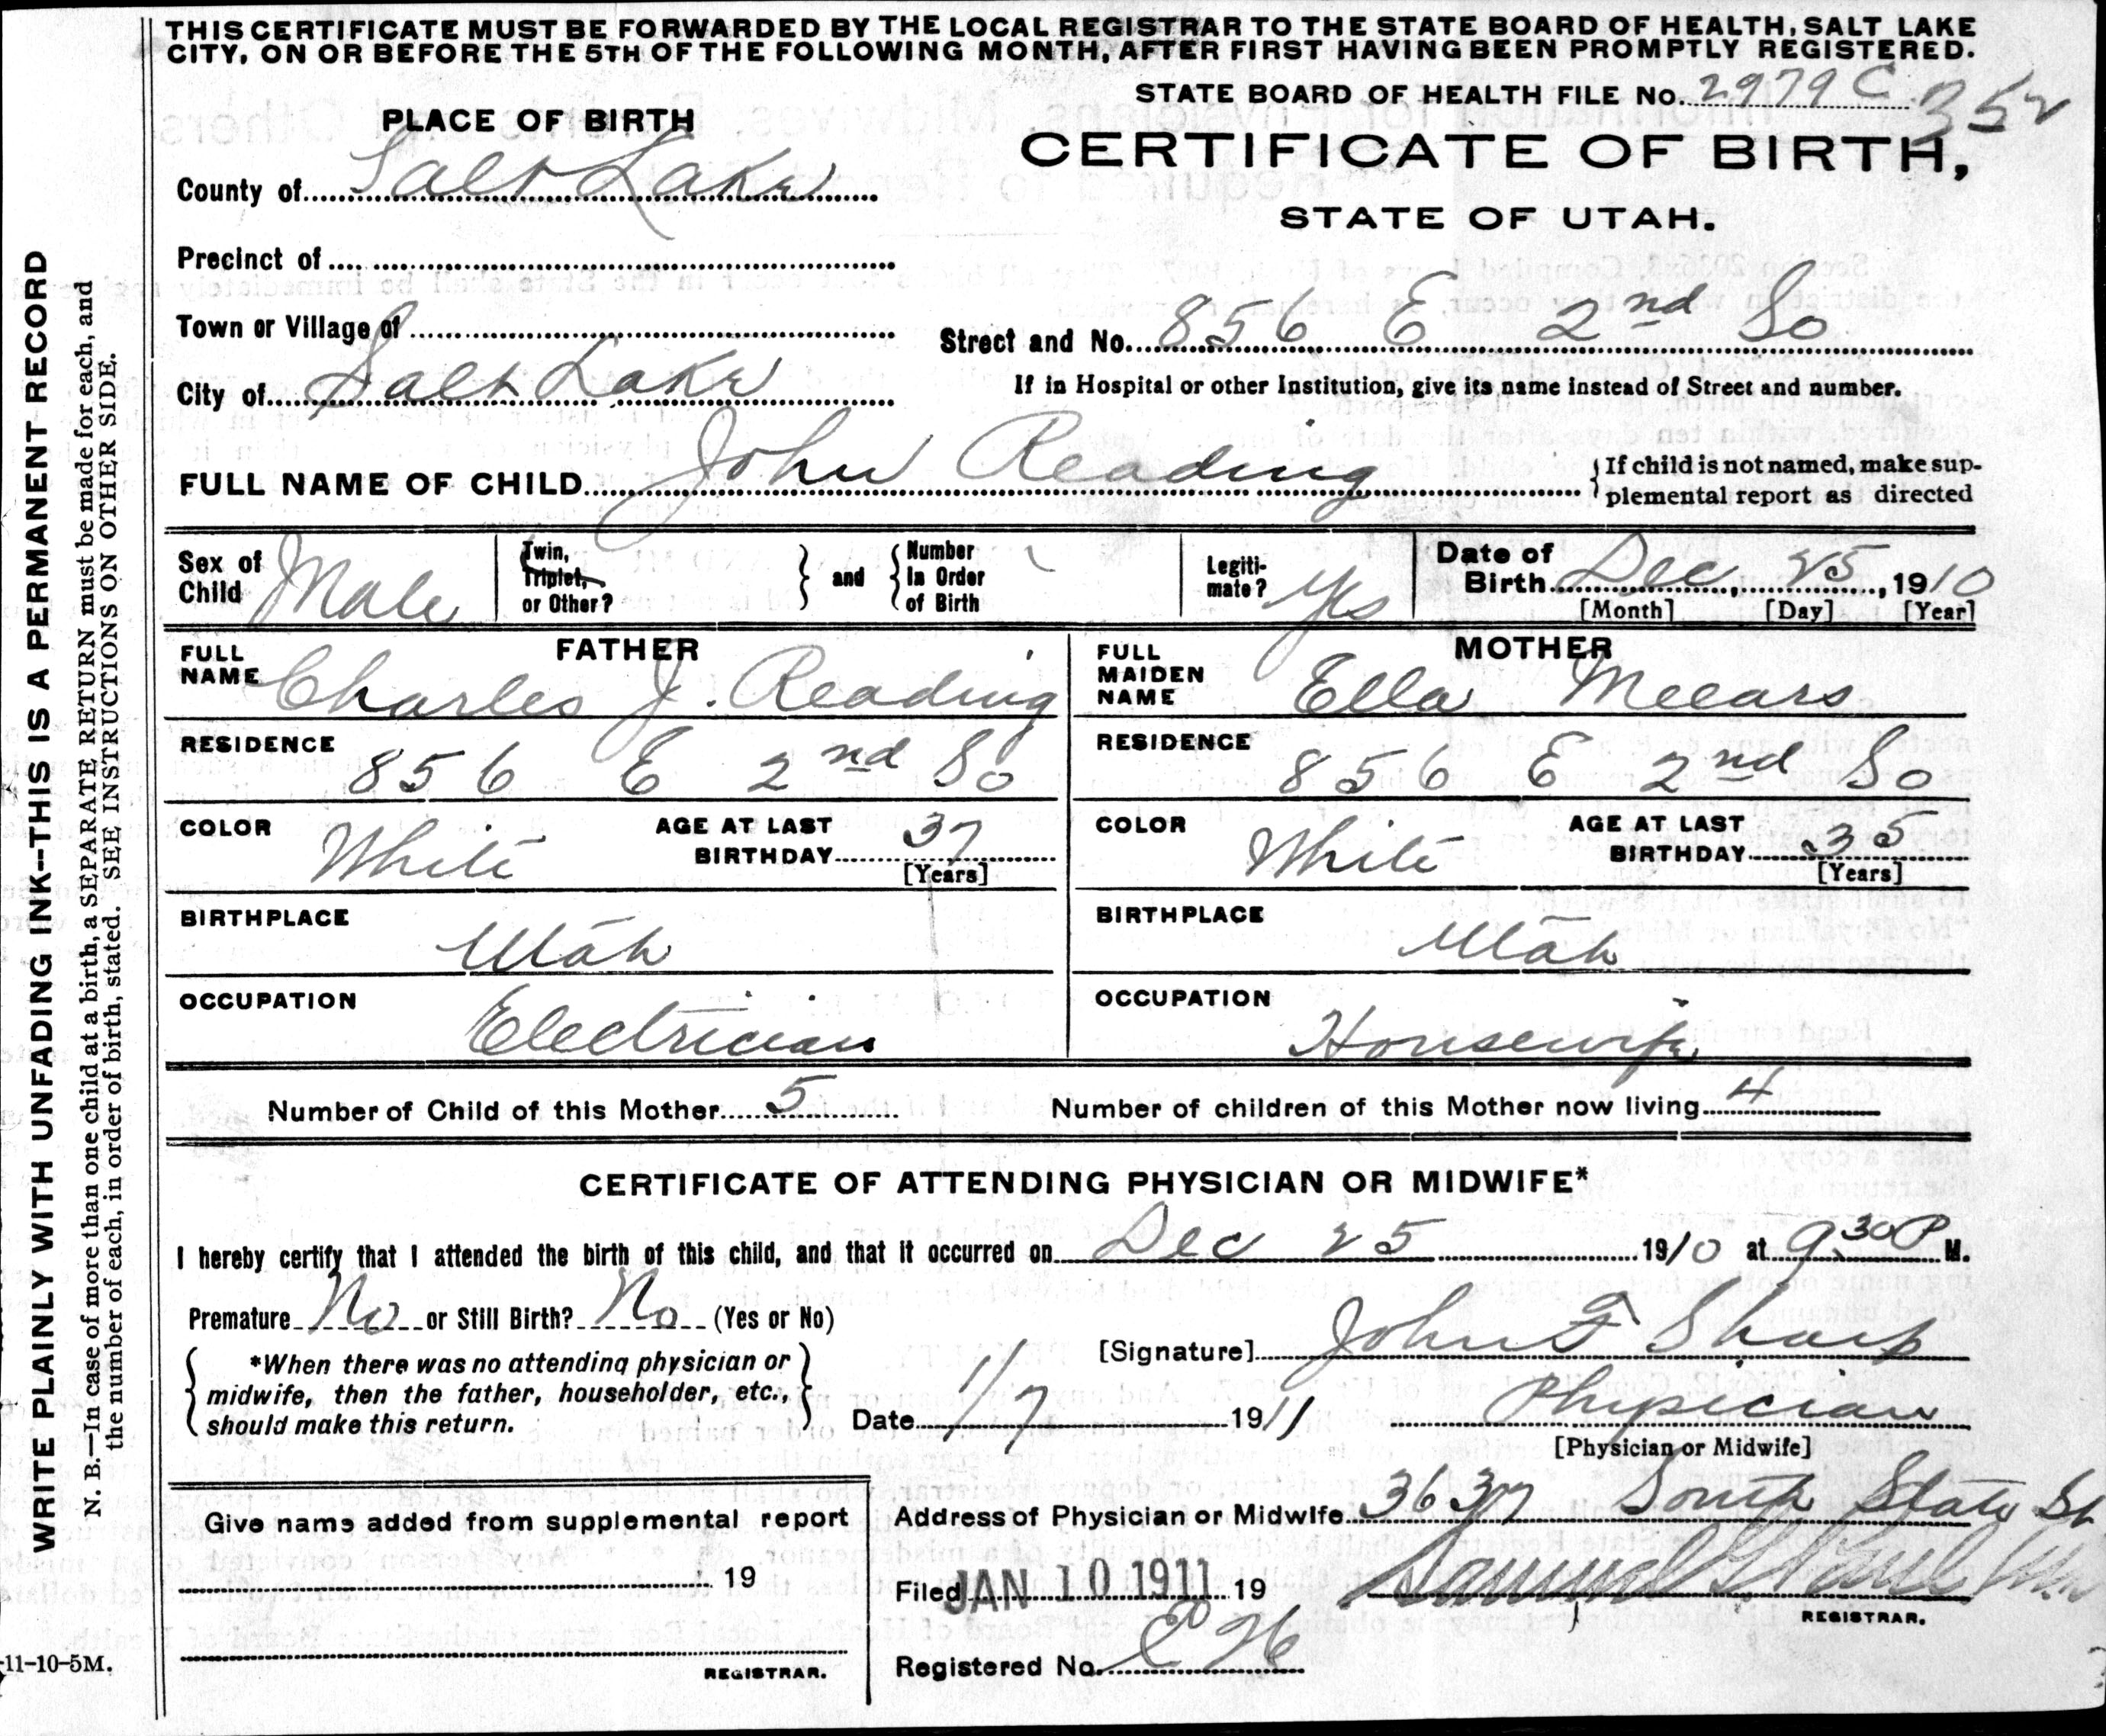 THIS CERTIFICATE MUST BE FORWARDED BY THE LOCAL REGISTRAR TO THE STATE BOARD OF HEALTH, SALT LAKE
CITY, ON OR BEFORE THE 5TH OF THE FOLLOWING MONTH, AFTER FIRST HAVING BEEN PROMPTLY REGISTERED.
STATE BOARD OF HEALTH FILE No. 2979 C 352
PLACE OF BIRTH
CERTIFICATE OF BIRTH,
STATE OF UTAH.
County of Salt Lake
Precinct of
Town or Village of
Street and No. 856 E 2nd So
City of Salt Lake
If in Hospital or other Institution, give its name instead of Street and number.
FULL NAME OF CHILD John Reading
If child is not named, make sup-
plemental report as directed
Sex of Child Male
Twin, Triplet, or Other? and Number In Order of Birth
Legiti-mate? Yes
Date of Birth Dec, 25, 1910
[Month] [Day] [Year]
FATHER
FULL NAME Charles J. Reading
RESIDENCE 856 E 2nd So
COLOR White AGE AT LAST BIRTHDAY 37
[Years]
BIRTHPLACE Utah
OCCUPATION Electrician
MOTHER
FULL MAIDEN NAME Ella Meears
RESIDENCE 856 E 2nd So
COLOR White AGE AT LAST BIRTHDAY 35
[Years]
BIRTHPLACE Utah
OCCUPATION Housewife
Number of Child of this Mother 5 Number of children of this Mother now living 4
CERTIFICATE OF ATTENDING PHYSICIAN OR MIDWIFE*
I hereby certify that I attended the birth of this child, and that it occurred on Dec 25 1910 at 9:30 P M.
Premature No or Still Birth? No (Yes or No)
[Signature] John F Sharp
*When there was no attending physician or
midwife, then the father, householder, etc.,
should make this return.
Date 1/7 1911 Physician
[Physician or Midwife]
Address of Physician or Midwife 3637 South State St
Give name added from supplemental report
19
REGISTRAR.
Filed JAN 10 1911 19 Samuel G. Paul
REGISTRAR.
Registered No. 26
WRITE PLAINLY WITH UNFADING INK--THIS IS A PERMANENT RECORD
N. B.—In case of more than one child at a birth, a SEPARATE RETURN must be made for each, and
the number of each, in order of birth, stated. SEE INSTRUCTIONS ON OTHER SIDE.
11-10-5M.